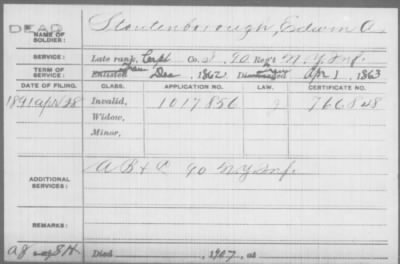 DEAD
NAME OF SOLDIER: Stoutenborough, Edwin A.
SERVICE: Late rank, Corpl Co. 90 Reg't N. Y. Inf.
TERM OF SERVICE: Enlisted Dec 1862 Discharged Apr 1, 1863
DATE OF FILING. CLASS. APPLICATION NO. LAW. CERTIFICATE NO.
1891 Apr 28 Invalid, 1017856 766848
Widow,
Minor,
ADDITIONAL SERVICES: A B & C 90 N Y Inf.
REMARKS:
Died , 1907, at